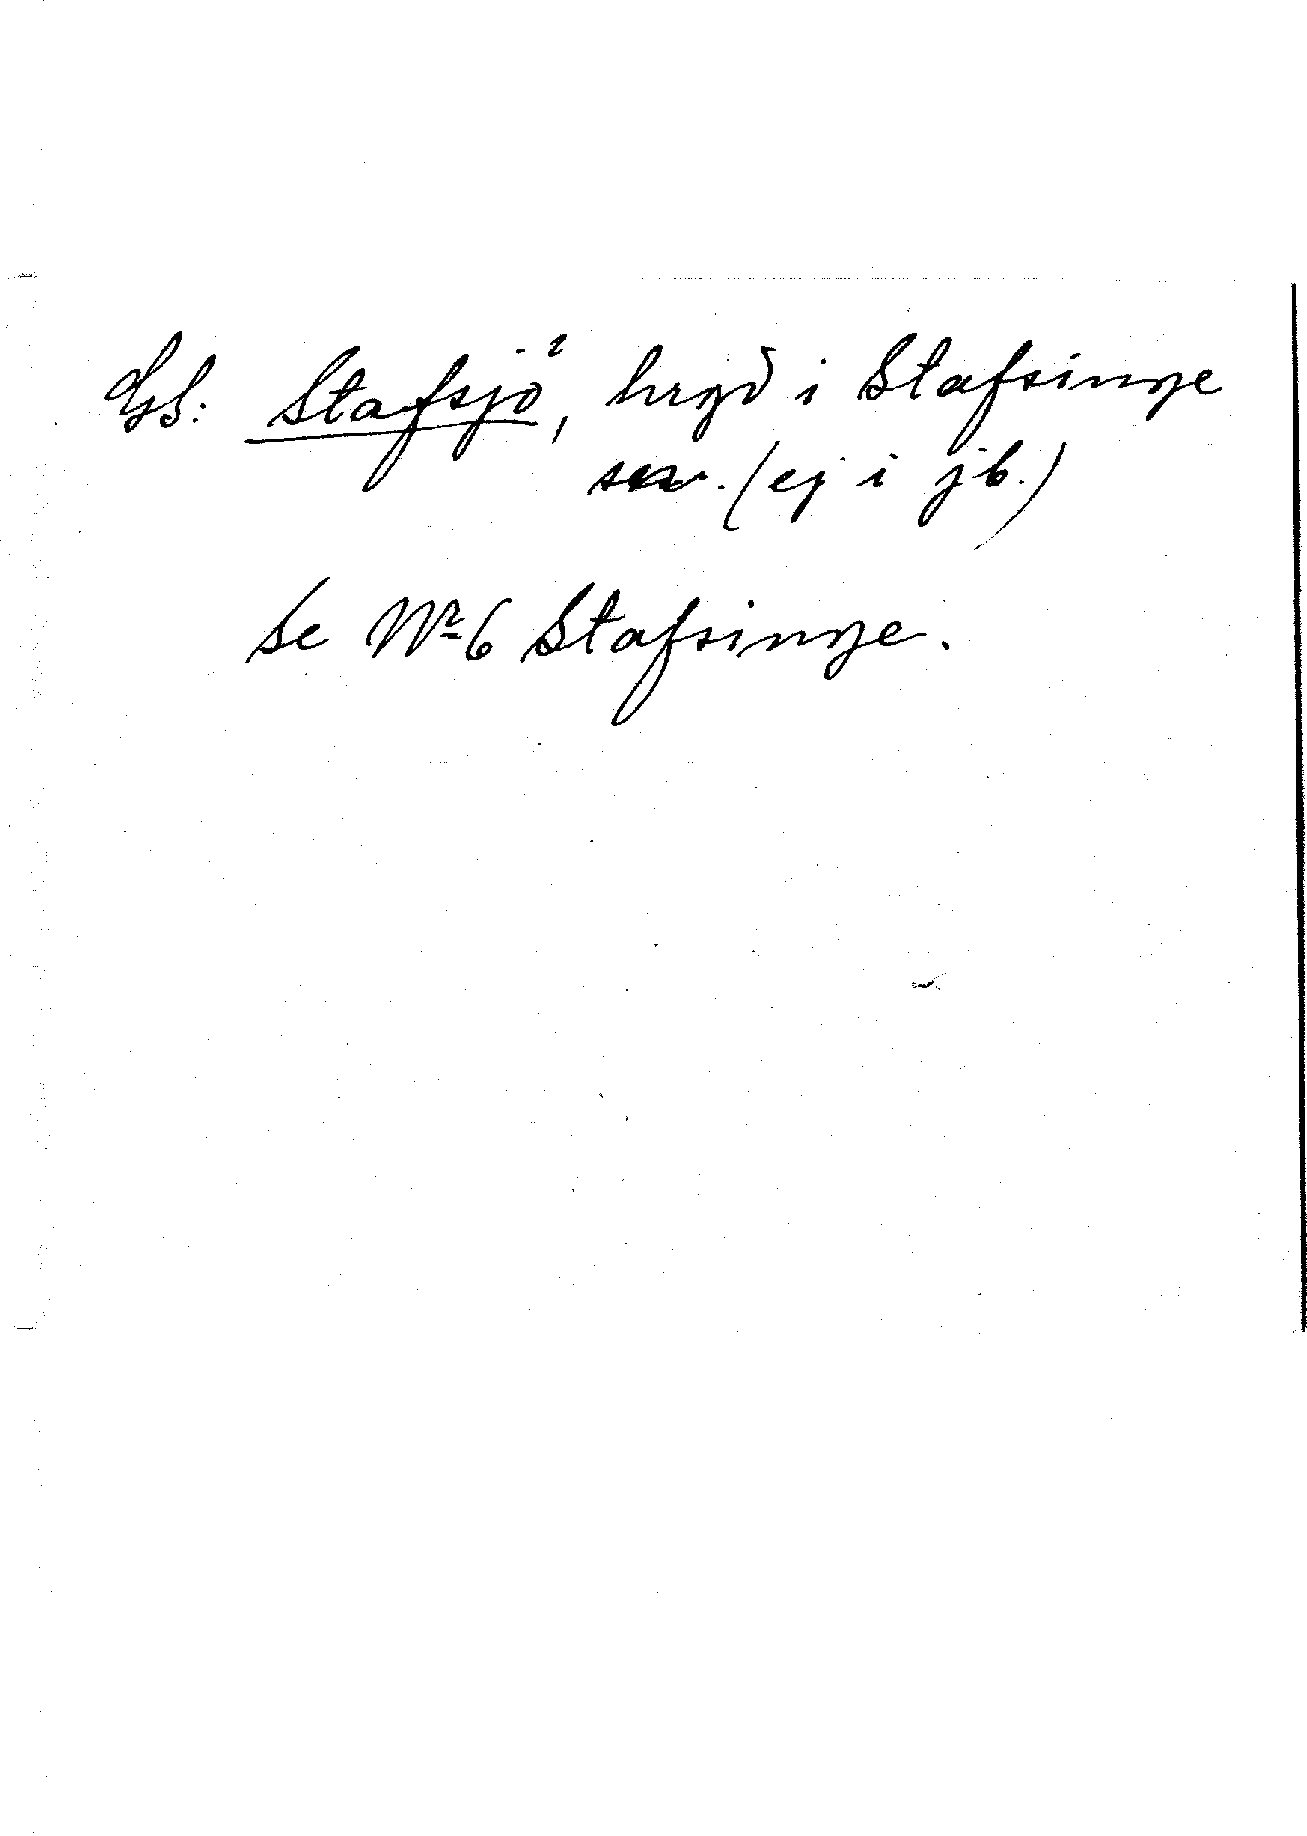 Gs: Stafsjö, hrgd i Stafsinge
sn. (ej i jb.)
Se Nr 6 Stafsinge.